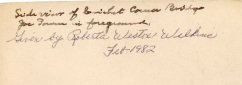 Side view of Cricket Corner Bridge
Joe Town in foreground.
Given by Roberta Wester Watkins
Feb 1982